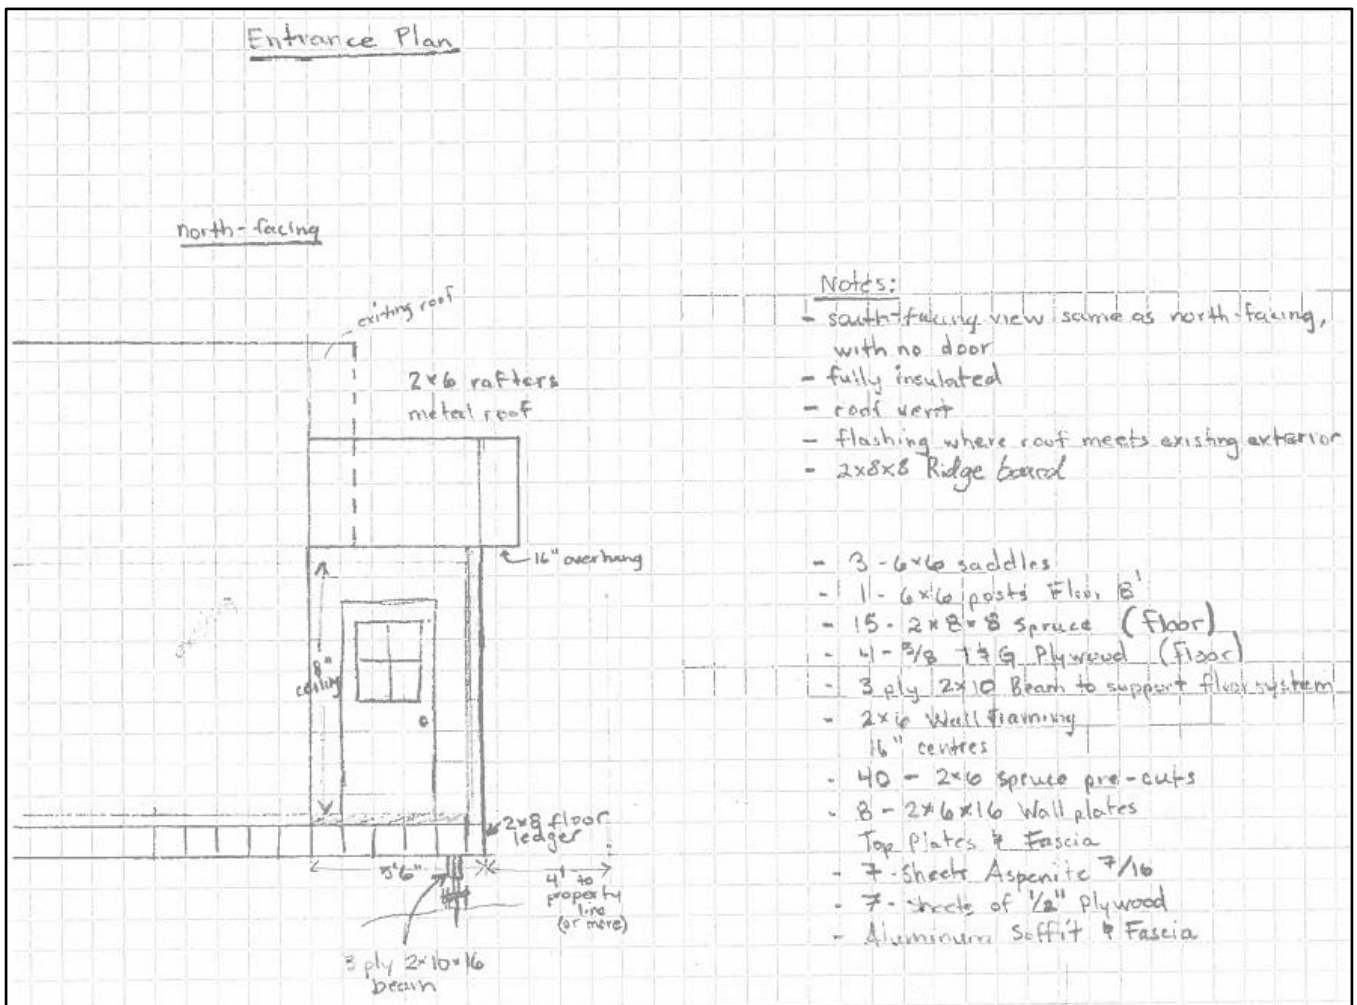 Entrance Plan
north-facing
existing roof
2x6 rafters
metal roof
16" overhang
8"
ceiling
2x8 floor
ledger
5'6"
4' to
property
line
(or more)
3 ply 2x10x16
beam
Notes:
- south-facing view same as north-facing,
with no door
- fully insulated
- roof vent
- flashing where roof meets existing exterior
- 2x8x8 Ridge board
- 3 - 6x6 saddles
- 1 - 6x6 posts Floor 8'
- 15 - 2x8x8 spruce (floor)
- 4 - 5/8 T&G Plywood (floor)
- 3 ply 2x10 Beam to support floor system
- 2x6 Wall framing
16" centres
- 40 - 2x6 spruce pre-cuts
- 8 - 2x6x16 Wall plates
Top Plates & Fascia
- 7 - Sheets Aspenite 7/16
- 7 - sheets of 1/2" plywood
- Aluminum Soffit & Fascia